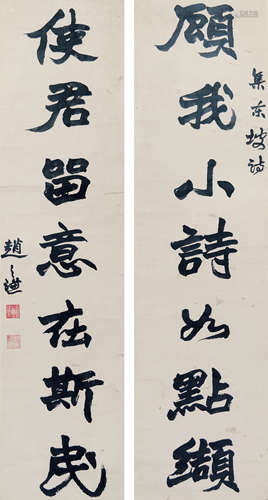 顧我小詩如點纈
集東坡詩
使君留意在斯民
趙之謙